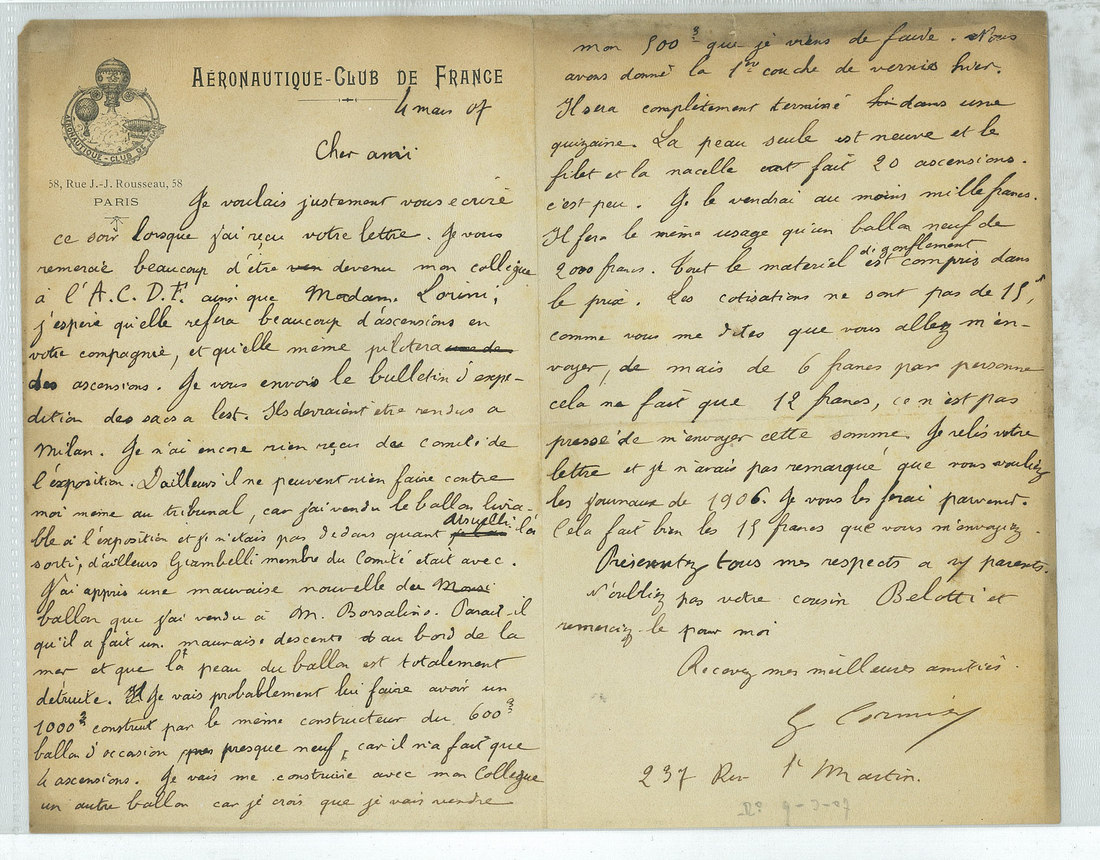 AÉRONAUTIQUE-CLUB DE FRANCE
AÉRONAUTIQUE-CLUB DE FRANCE
4 mars 07
Cher ami
58, Rue J.-J. Rousseau, 58
PARIS
Je voulais justement vous ecrire
ce soir lorsque j'ai reçu votre lettre. Je vous
remercie beaucoup d'être devenu mon collegue
à l'A.C.D.F. ainsi que Madam. Lorini,
j'espere qu'elle refera beaucoup d'ascensions en
votre compagnie, et qu'elle même pilotera
des ascensions. Je vous envois le bulletin d'expe-
dition des sacs a lest. Ils devraient être rendus a
Milan. Je n'ai encore rien reçu du comité de
l'éxposition. D'ailleurs il ne peuvent rien faire contre
moi même au tribunal, car j'ai vendu le ballon livra-
ble a l'éxposition et je n'etais pas dedans quant Usuelli l'a
sorti, d'ailleurs Giambelli membre du Comité était avec.
J'ai appris une mauvaise nouvelle du
ballon que j'ai vendu à M. Borsalino. Parait il
qu'il a fait un mauvaise descente au bord de la
mer et que la peau du ballon est totalement
détruite. Je vais probablement lui faire avoir un
1000 3 construit par le même constructeur du 600 3
ballon d'occasion presque neuf, car il n'a fait que
4 ascensions. Je vais me construire avec mon Collegue
un autre ballon car je crois que je vais vendre
mon 500 3 que je viens de faire. Nous
avons donné la 1re couche de vernis hier.
Il sera complètement terminé dans une
quizaine. La peau seule est neuve et le
filet et la nacelle ont fait 20 ascensions.
c'est peu. Je le vendrai au moins mille francs.
Il fera le même usage qu'un ballon neuf de
2000 francs. Tout le materiel d'gonflement est compris dans
le prix. Les cotisations ne sont pas de 15 f
comme vous me dites que vous allez m'en-
voyer, de mais de 6 francs par personne
cela ne fait que 12 francs, ce n'est pas
pressé de m'envoyer cette somme. Je relis votre
lettre et je n'avais pas remarqué que vous vouliez
les journaux de 1906. Je vous les ferai parvenir.
Cela fait bien les 15 francs que vous m'envoyez.
Présentez tous mes respects a vos parents.
N'oubliez pas votre cousin Belotti et
remerciez-le pour moi
Recevez mes meilleures amitiés.
G Cormier
237 Rue St Martin.
R° 9-3-07